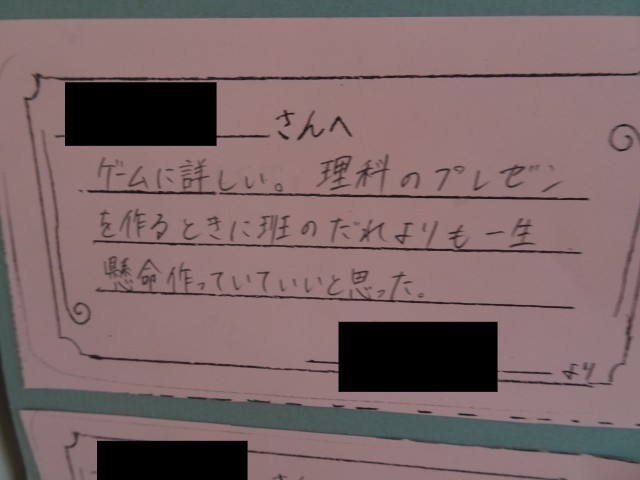 さんへ
ゲームに詳しい。理科のプレゼン
を作るときに班のだれよりも一生
懸命作っていていいと思った。
より
さん